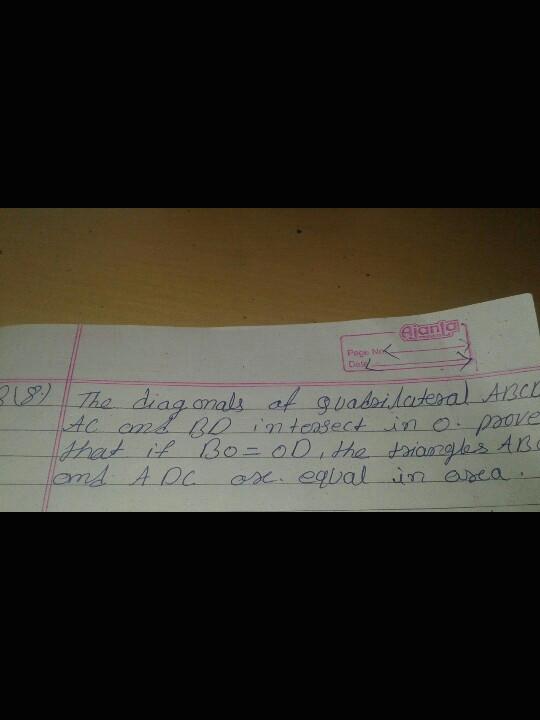 Ajanta
Page No.
Date
Q(8.) The diagonals of quadrilateral ABCD
AC and BD intersect in O. prove
that if BO = OD, the triangles ABC
and ADC are. equal in area.